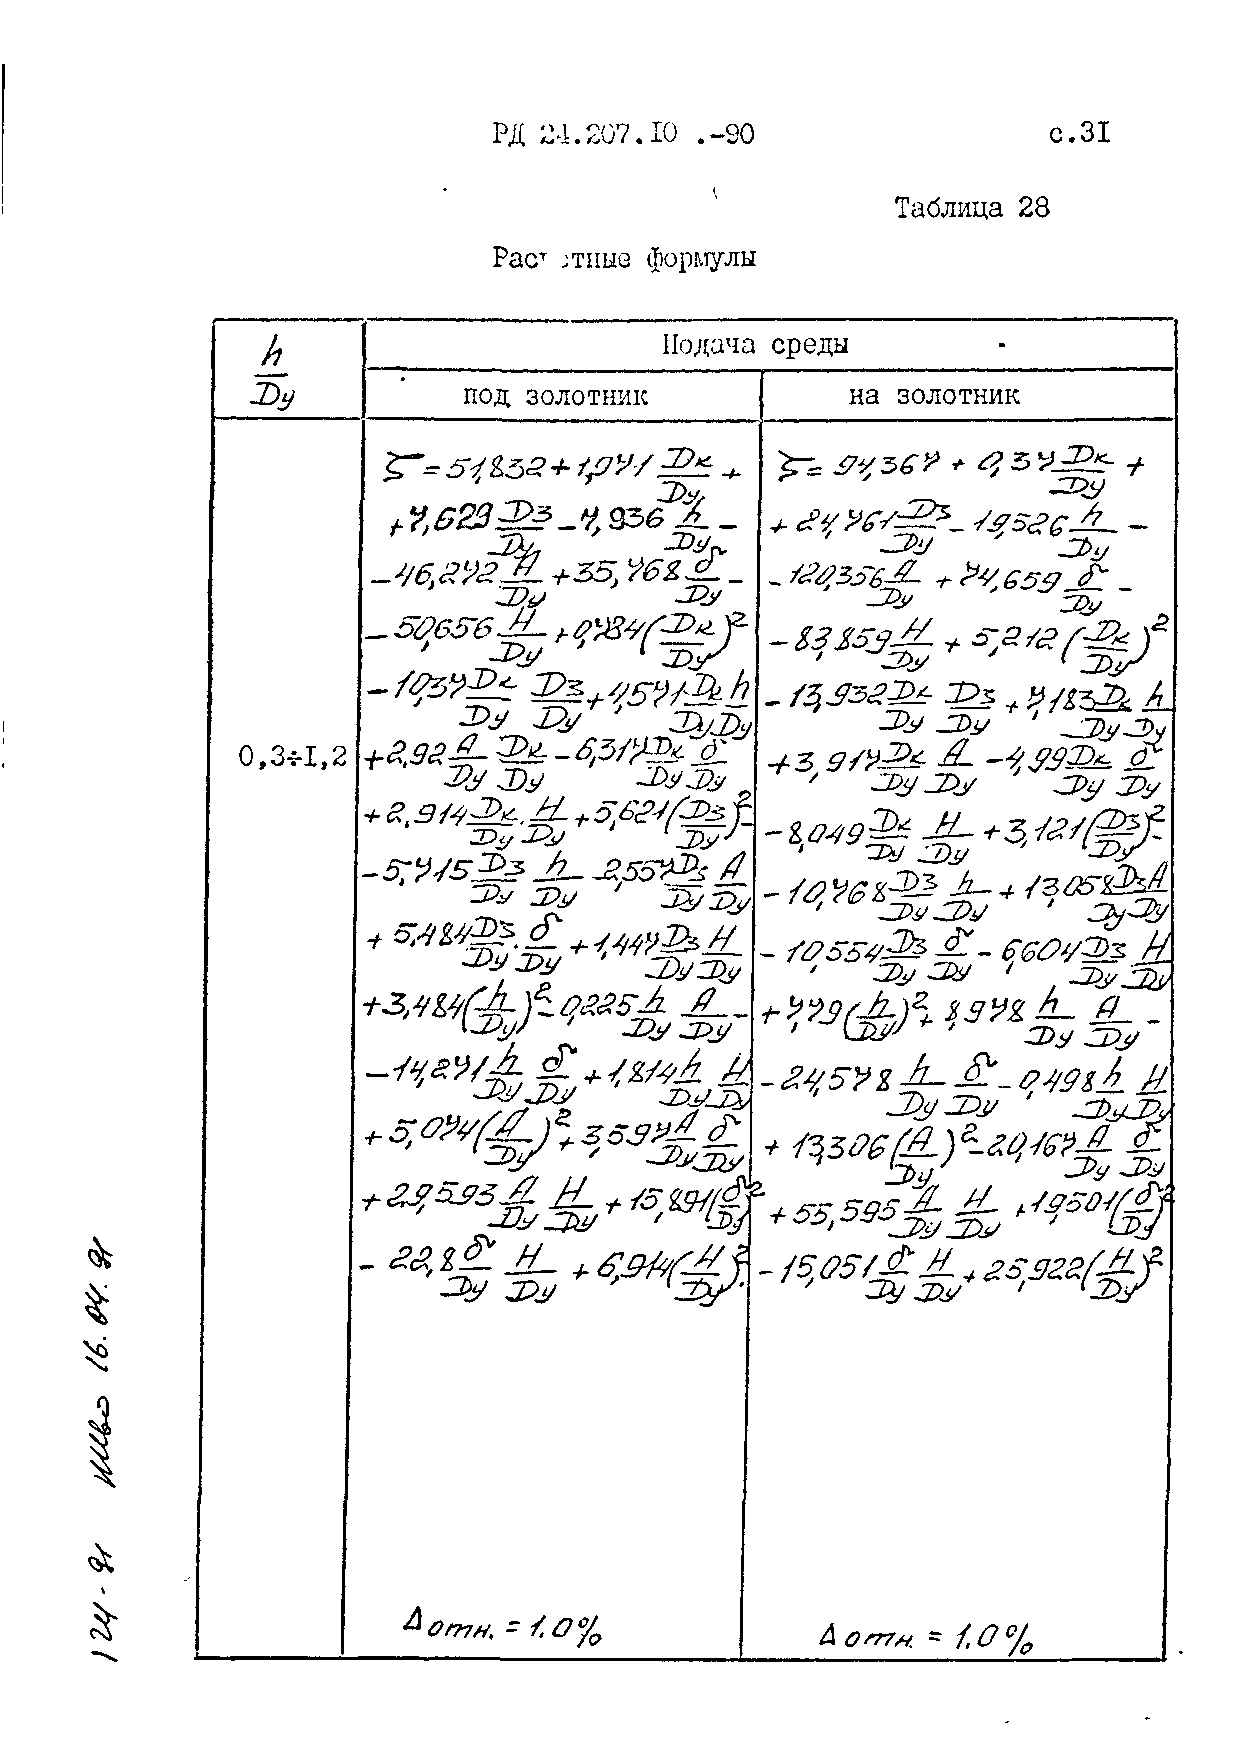 РД 24.207.10 .-90 с.31
Таблица 28
формулы
h/Dy
Подача среды
под золотник
на золотник
0,3÷1,2
ζ=51,832+1,971 Dк/Dy +
+7,629 Dз/Dy -4,936 h/Dy -
-46,272 A/Dy +35,768 δ/Dy -
-50,656 H/Dy +0,784(Dк/Dy)²
-1,037 Dк/Dy Dз/Dy +4,571 Dк/Dy h/Dy
+2,92 A/Dy Dк/Dy -6,317 Dк/Dy δ/Dy
+2,914 Dк/Dy · H/Dy +5,621(Dз/Dy)²-
-5,715 Dз/Dy h/Dy -2,557 Dз/Dy A/Dy
+5,484 Dз/Dy · δ/Dy +1,447 Dз/Dy H/Dy
+3,484(h/Dy)²-0,225 h/Dy A/Dy -
-14,271 h/Dy δ/Dy +1,814 h/Dy H/Dy
+5,074(A/Dy)²+3,597 A/Dy δ/Dy
+29,593 A/Dy H/Dy +15,891(δ/Dy)²
-22,8 δ/Dy H/Dy +6,914(H/Dy)².
Δ отн. = 1.0%
ζ= 94,367 + 0,37 Dк/Dy +
+24,761 Dз/Dy -19,526 h/Dy -
-120,356 A/Dy +74,659 δ/Dy -
-83,859 H/Dy +5,212(Dк/Dy)²
-13,932 Dк/Dy Dз/Dy +7,183 Dк/Dy h/Dy
+3,917 Dк/Dy A/Dy -4,99 Dк/Dy δ/Dy
-8,049 Dк/Dy H/Dy +3,121(Dз/Dy)²-
-10,768 Dз/Dy h/Dy +13,058 Dз/Dy A/Dy
-10,554 Dз/Dy δ/Dy -6,604 Dз/Dy H/Dy
+7,79(h/Dy)²+8,978 h/Dy A/Dy -
-24,578 h/Dy δ/Dy -0,498 h/Dy H/Dy
+13,306(A/Dy)²-20,167 A/Dy δ/Dy
+55,595 A/Dy H/Dy +19,501(δ/Dy)²
-15,051 δ/Dy H/Dy +25,922(H/Dy)²
Δ отн. = 1.0%
124-91 16.04.91